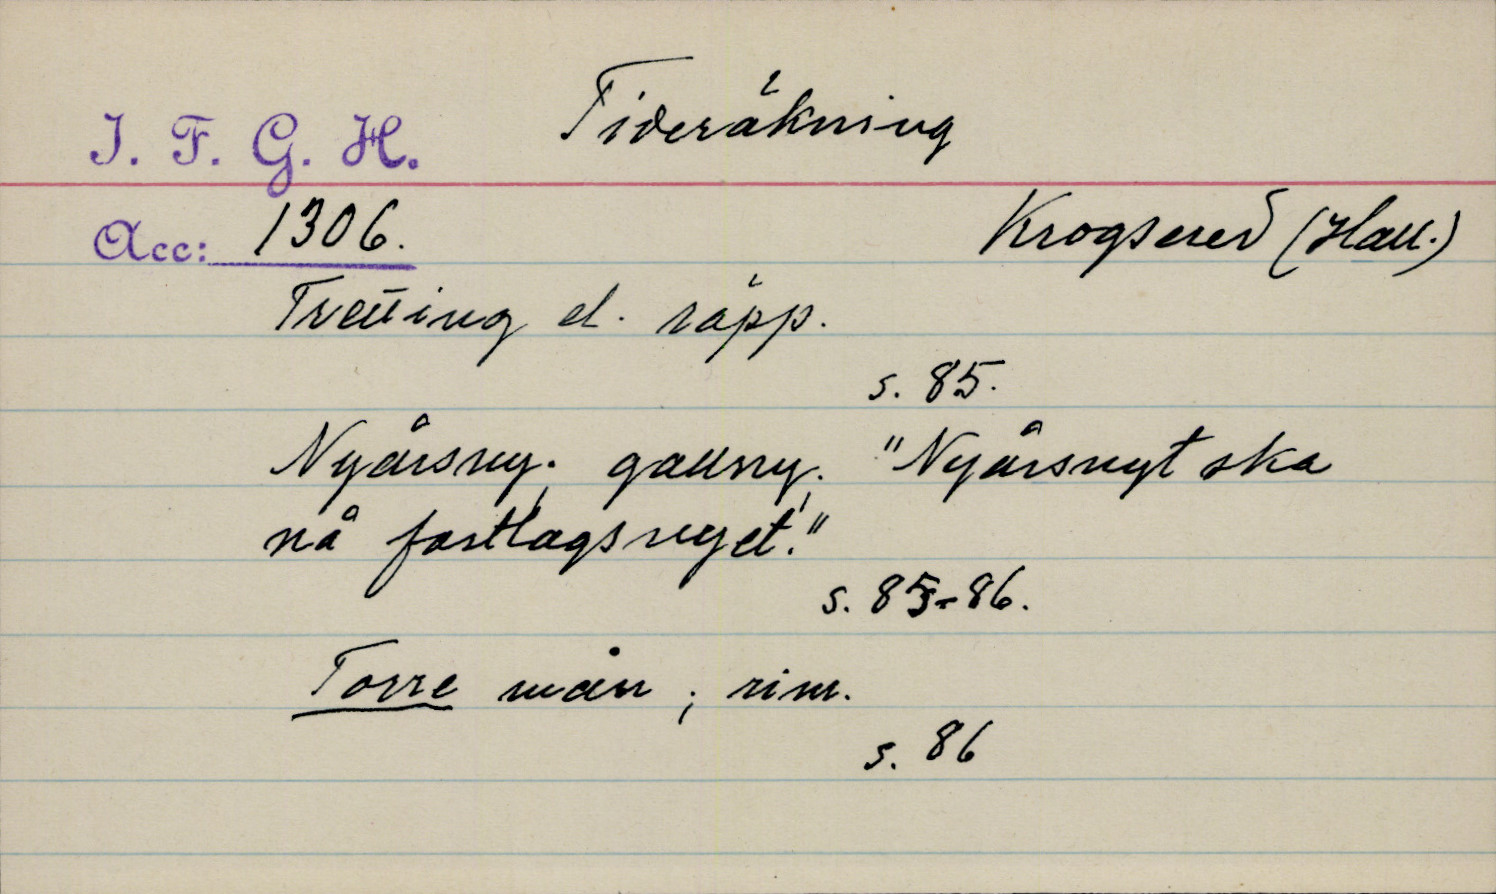 Tideräkning
I. F. G. H.
Acc: 1306.
Krogsered (Hall.)
Tretting el. räpp.
s. 85.
Nyårsny; gallny; "Nyårsnyt ska
nå fastlagsnyet."
s. 85-86.
Torre mån; rim.
s. 86